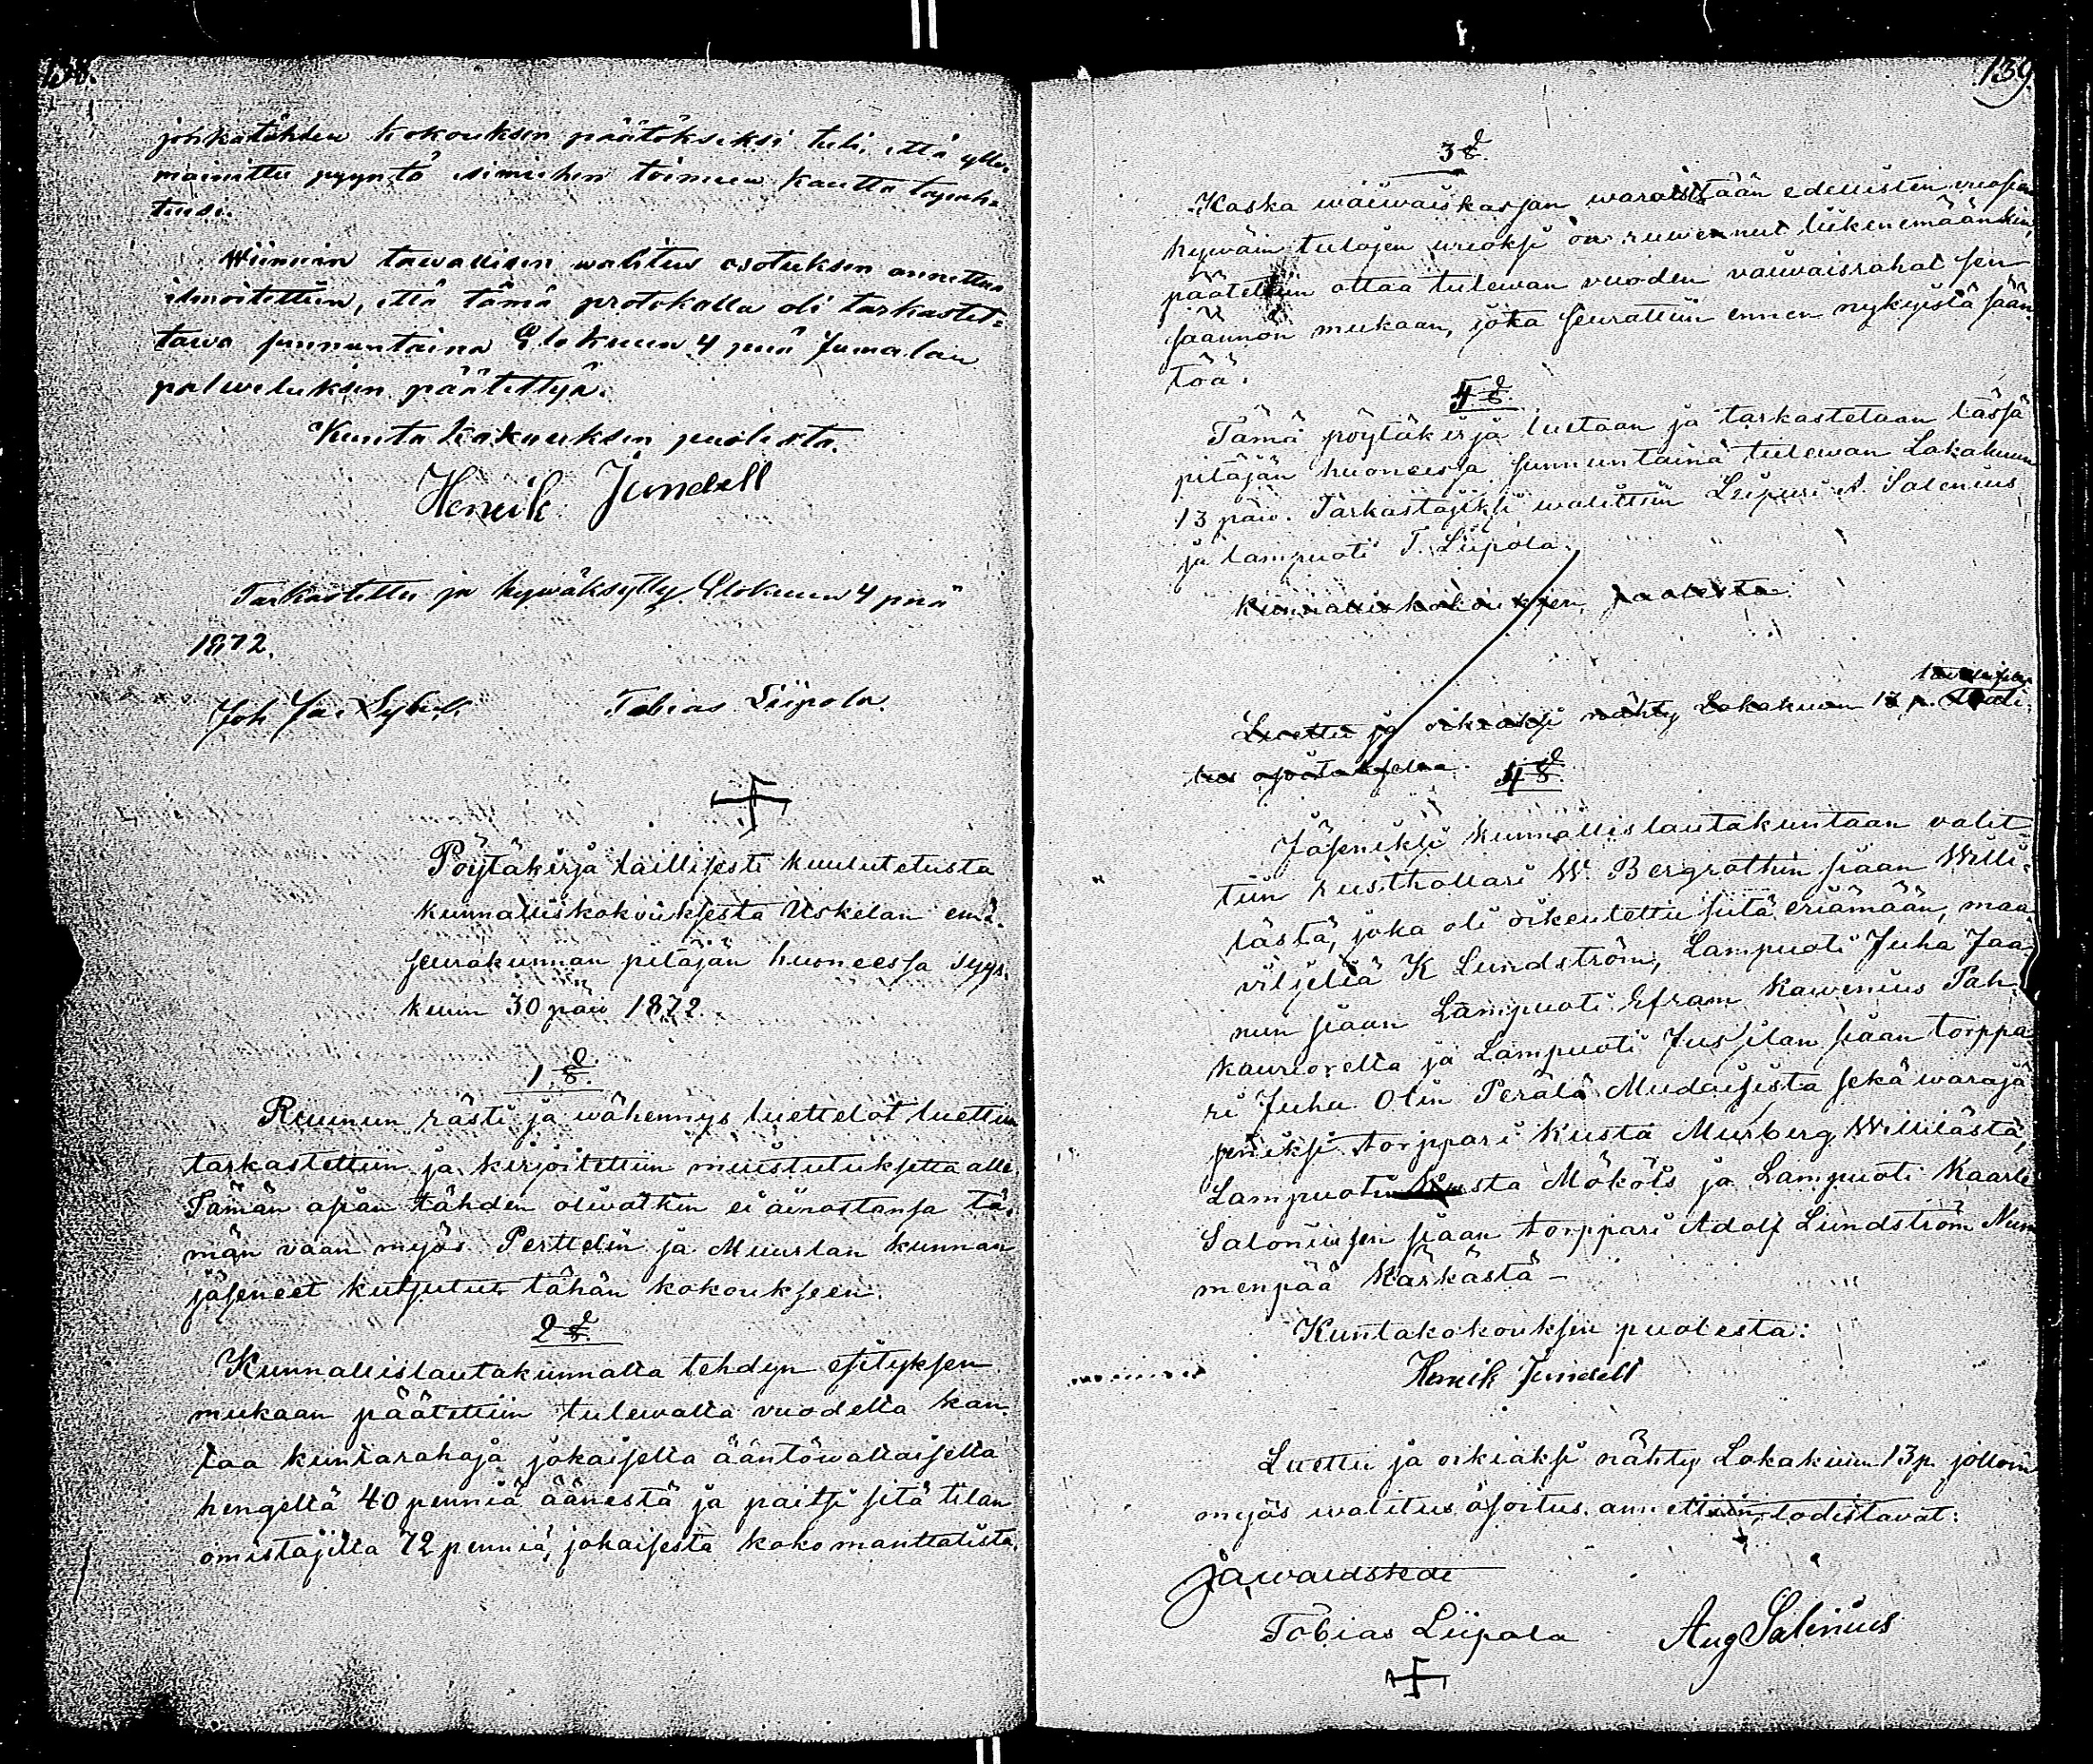 138.
jonkatähden kokouksen päätökseksi tuli että ylle
mainittu pyyntö esimiehen toimen kautta tapah-
tuisi.
Wiimein tawallisen walitus osotuksen annettua
ilmoitettiin, että tämä protokolla oli tarkastet-
tawa sunnuntaina Elokuun 4 pnä Jumalan
palweluksen päätettyä.
Kunta kokouksen puolesta.
Henrik Jundell
Tarkastettu ja hywäksytty Elokuun 4 pnä
1872.
Joh Jac
Tobias Liipola.
Pöytäkirja laillisesti kuulutetusta
kunnalliskokouksesta Uskelan emä-
seurakunnan pitäjän huoneessa syys-
kuun 30 päiv 1872.
1 §.
Ruunun rästi ja wähennys luettelot luettiin
tarkastettiin ja kirjoitettiin muistutuksetta alle.
Tämän asian tähden oliwatkin ei ainoastansa tä-
män vaan myös Perttelin ja Muurlan kunnan
jäsenet kutsutut tähän kokoukseen.
2 §.
Kunnallislautakunnalta tehdyn esityksen
mukaan päätettiin tulewalta vuodelta kan-
taa kuntarahaja jokaiselta ääntöwaltaiselta
hengeltä 40 penniä äänestä ja paitsi sitä tilan
omistajilta 72 penniä, jokaisesta koko manttalista.
139.
3 §.
Koska waiwaiskassan waraistään edellisten vuosien
hywäin tulojen wuoksi on ruwennut liikenemäänkin,
päätettiin ottaa tulewan vuoden vaiwaisrahat sen
säännön mukaan, jota seurattiin ennen nykyistä sään-
töä.
4 §.
Tämä pöytäkirja luetaan ja tarkastetaan tässä
pitäjän huoneessa sunnuntaina tulewan Lokakuun
13 päiv. Tarkastajiksi walittiin Leipuri A. Salenius
ja lampuoti T. Liipola.
Kunnalliskokouksen puolesta
Luettu ja oikiaksi nähty Lokakuun 13 p. tawallisen wali-
tus osoituksella.
4 §.
Jäseniksi kunnallislautakuntaan valit-
tiin rusthollari W. Bergrothin siaan Willi-
lästä, joka oli oikeutettu siitä eriämään, maa-
viljeliä K Lundström, Lampuoti Juha Jaa-
nun siaan Lampuoti Efram Kawenius Pah-
kauriorelta ja Lampuoti Jussilan siaan torppa-
ri Juha Olin Perälä Mudaisista sekä warajä-
seniksi torppari Kustä Murberg Willilästä,
Lampuoti Kusta Mököis ja Lampuoti Kaarle
Saloniusen siaan torppari Adolf Lundström Num-
menpää Kärkästä –
Kuntakokouksen puolesta:
Henrik Jundell
Luettu ja oikiaksi nähty Lokakuun 13 p. jolloin
myös walitus osoitus annettiin, todistavat:
Tobias Liipola Aug Salenius